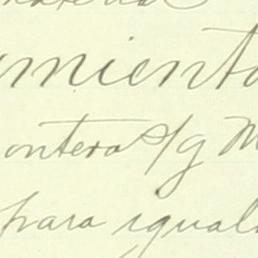 amiento
ontera s/g M
para igual